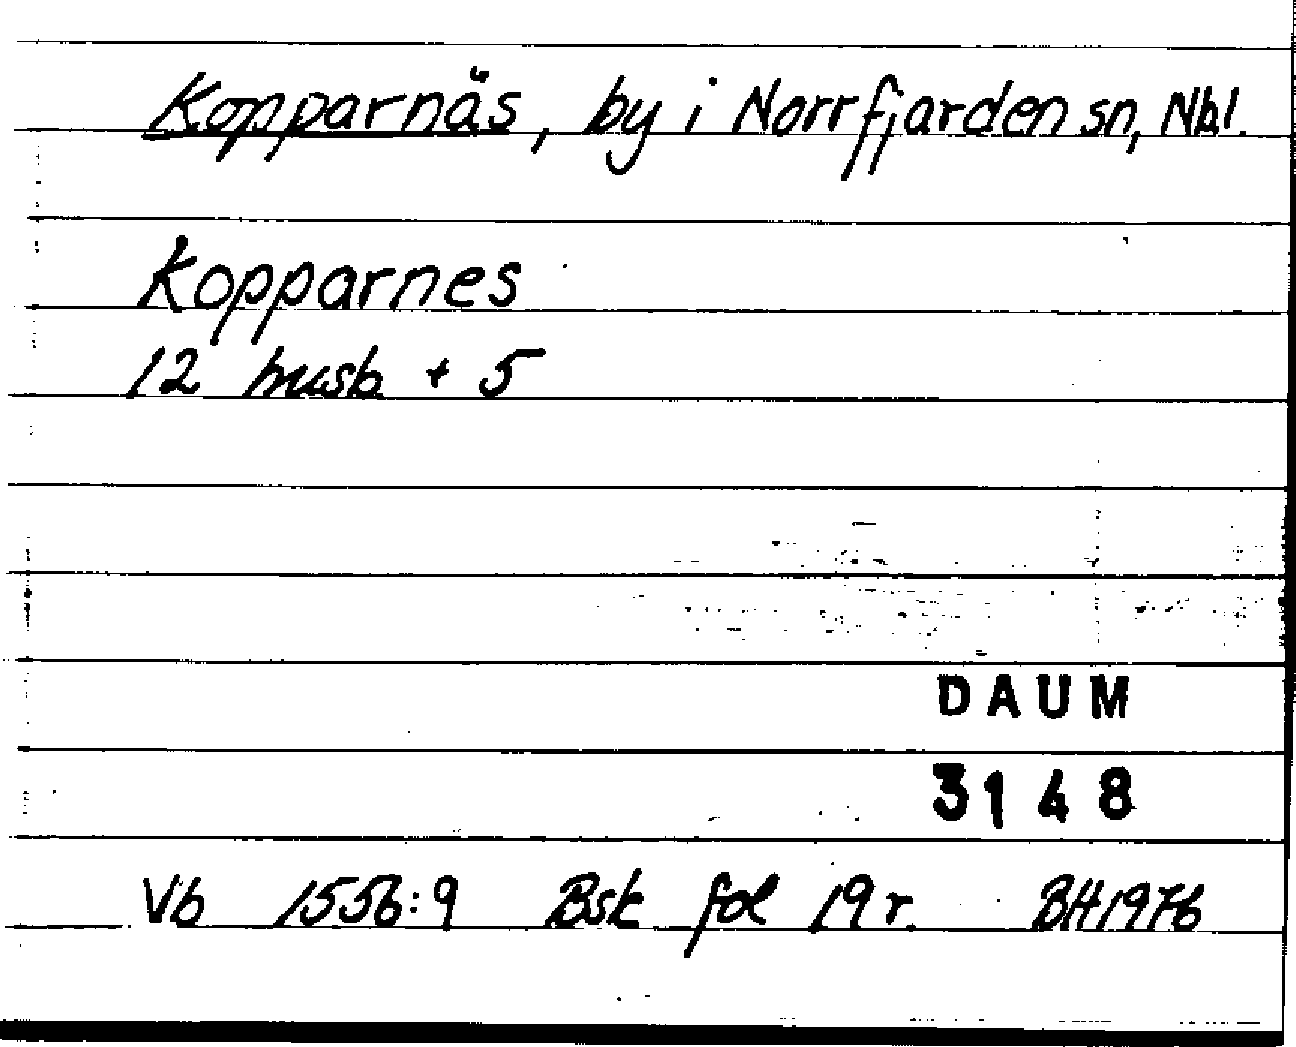 Kopparnäs, by i Norrfjarden sn, Nbl.
Kopparnes
12 husb. + 5
DAUM
3148
Vb 1556:9 Bsk fol 19 r. BH1976